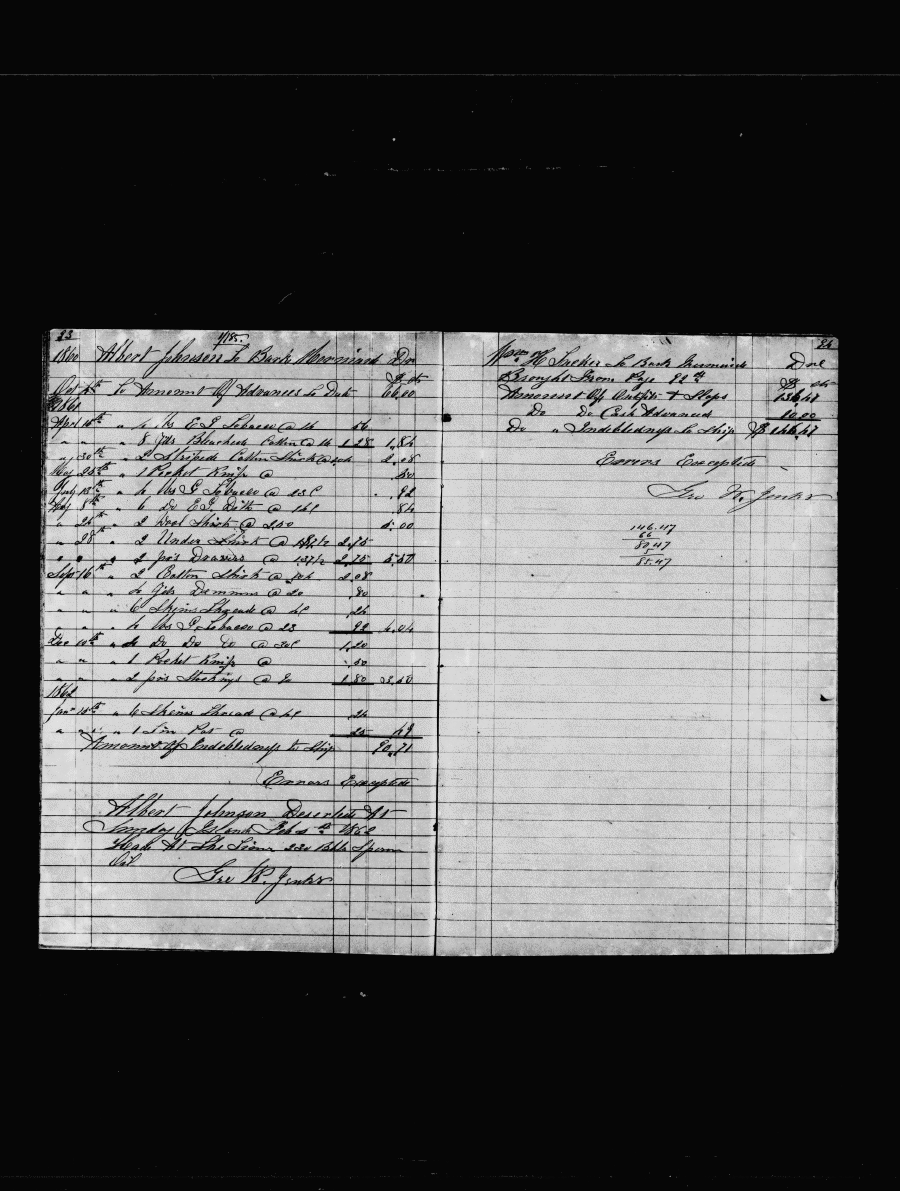 23
1/185.
1860 Albert Johnson To Bark Merrimack Dr
$ cts
Oct 4th To Amount Of Advances To Date 66.00
1861
April 16th " 4 lbs E.G. Tobacco @ 14 56
" " " 8 Yds Bleached Cotton @ 16 1.28 1.84
" 30th " 2 Striped Cotton Shirts @ 104 2.08
May 25th " 1 Pocket Knife @ .50
July 13th " 4 lbs G Tobacco @ 23c .92
8th " 6 Do E.G. Ditto @ 14c .84
" 26th " 2 Wool Shirts @ 250 5.00
" 28th " 2 Under Shirts @ 137½ 2.75
" " " 2 prs Drawers @ 137½ 2.75 5.50
Sept 16th " 2 Cotton Shirts @ 104 2.08
" " " 4 Yds Denims @ 20 .80
" " " 6 Skeins Thread @ 4c 24
" " " 4 lbs G. Tobacco @ 23 92 4.04
Dec 10th " 4 Do Do Do @ 30c 1.20
" " " 1 Pocket Knife @ .50
" " " 2 prs Stockings @ 90 1.80 3.50
1862
Jany 15th " 6 Skeins Thread @ 4c 24
" " " 1 Tin Pot @ 25 49
Amount Of Indebtedness to Ship 90.71
Errors Excepted
Albert Johnson Deserted At
Sunday Island Feb 4th 1862
Had At The Time 220 Bbls Sperm
Oil
Geo W. Jenks
24
Wm H Tucker To Bark Merrimack Dr
Brought From Page 22nd $ cts
Amount Of Outfits & Slops 136.47
Do Do Cash Advanced 10.00
Do " Indebtedness To Ship $ 146.47
Errors Excepted
Geo W. Jenks
146.47
66
80.47
5
85.47